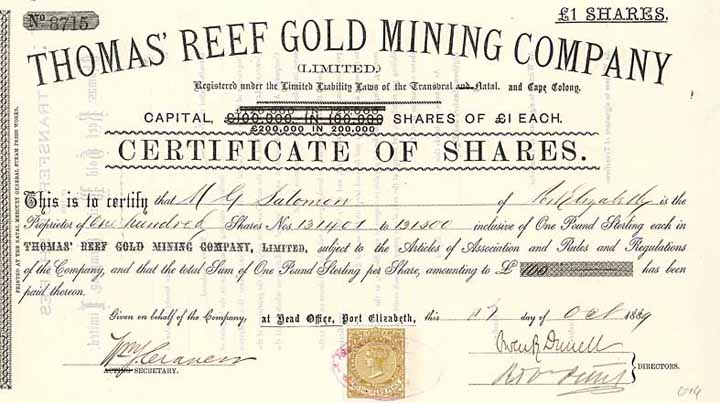 No 8715
£1 SHARES.
THOMAS' REEF GOLD MINING COMPANY
(LIMITED.)
Registered under the Limited Liability Laws of the Transvaal and Natal. and Cape Colony.
CAPITAL, £100,000, IN 100,000 SHARES OF £1 EACH.
£200,000 IN 200,000
CERTIFICATE OF SHARES.
This is to certify that M G Salomon of Port Elizabeth is the
Proprietor of One hundred Shares Nos. 131401 to 131500 inclusive of One Pound Sterling each in
THOMAS' REEF GOLD MINING COMPANY, LIMITED, subject to the Articles of Association and Rules and Regulations
of the Company, and that the total Sum of One Pound Sterling per Share, amounting to £ 100 has been
paid thereon.
Given on behalf of the Company, at Head Office, Port Elizabeth, this day of Oct 1889
ACTING SECRETARY.
DIRECTORS.
PRINTED AT THE NATAL MERCURY GENERAL STEAM PRESS WORKS.